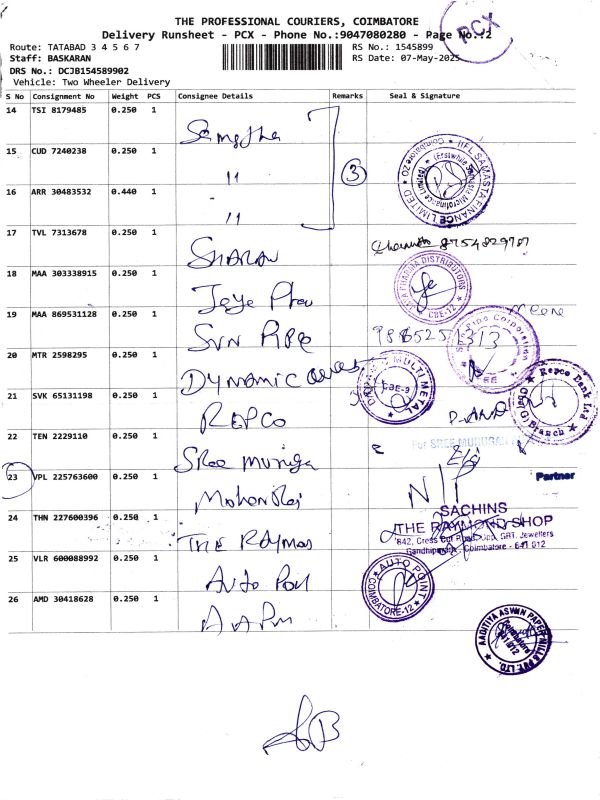 THE PROFESSIONAL COURIERS, COIMBATORE
Delivery Runsheet - PCX - Phone No.:9047080280 - Page No.:2
PCX
Route: TATABAD 3 4 5 6 7
RS No.: 1545899
Staff: BASKARAN
RS Date: 07-May-2025
DRS No.: DCJB154589902
Vehicle: Two Wheeler Delivery
S No Consignment No Weight PCS Consignee Details Remarks Seal & Signature
14 TSI 8179485 0.250 1 Samastha
15 CUD 7240238 0.250 1 " 3
IIFL SAMASTA FINANCE LIMITED
(Erstwhile Samasta Microfinance Limited)
Coimbatore
16 ARR 30483532 0.440 1 "
17 TVL 7313678 0.250 1 SHARAN 8754829787
18 MAA 303338915 0.250 1 Jaya
PHARMA DISTRIBUTORS
CBE-12
19 MAA 869531128 0.250 1 SVN
Corporation
20 MTR 2598295 0.250 1 DYNAMIC
MULTI METAL
CBE-9
21 SVK 65131198 0.250 1 REPCO
Repco Bank Ltd
Branch
22 TEN 2229110 0.250 1 Sree Muruga
For SREE MURUGAN
Partner
23 VPL 225763600 0.250 1 Mohan Raj
24 THN 227600396 0.250 1 THE RAYMOND
SACHINS
THE RAYMOND SHOP
842, Cross Cut Road, Opp. GRT. Jewellers
Gandhipuram, Coimbatore - 641 012
25 VLR 600088992 0.250 1 Auto Point
AUTO POINT
COIMBATORE-12
26 AMD 30418628 0.250 1
AADITYA ASWIN PAPER MILLS PVT. LTD.
Coimbatore
641 012